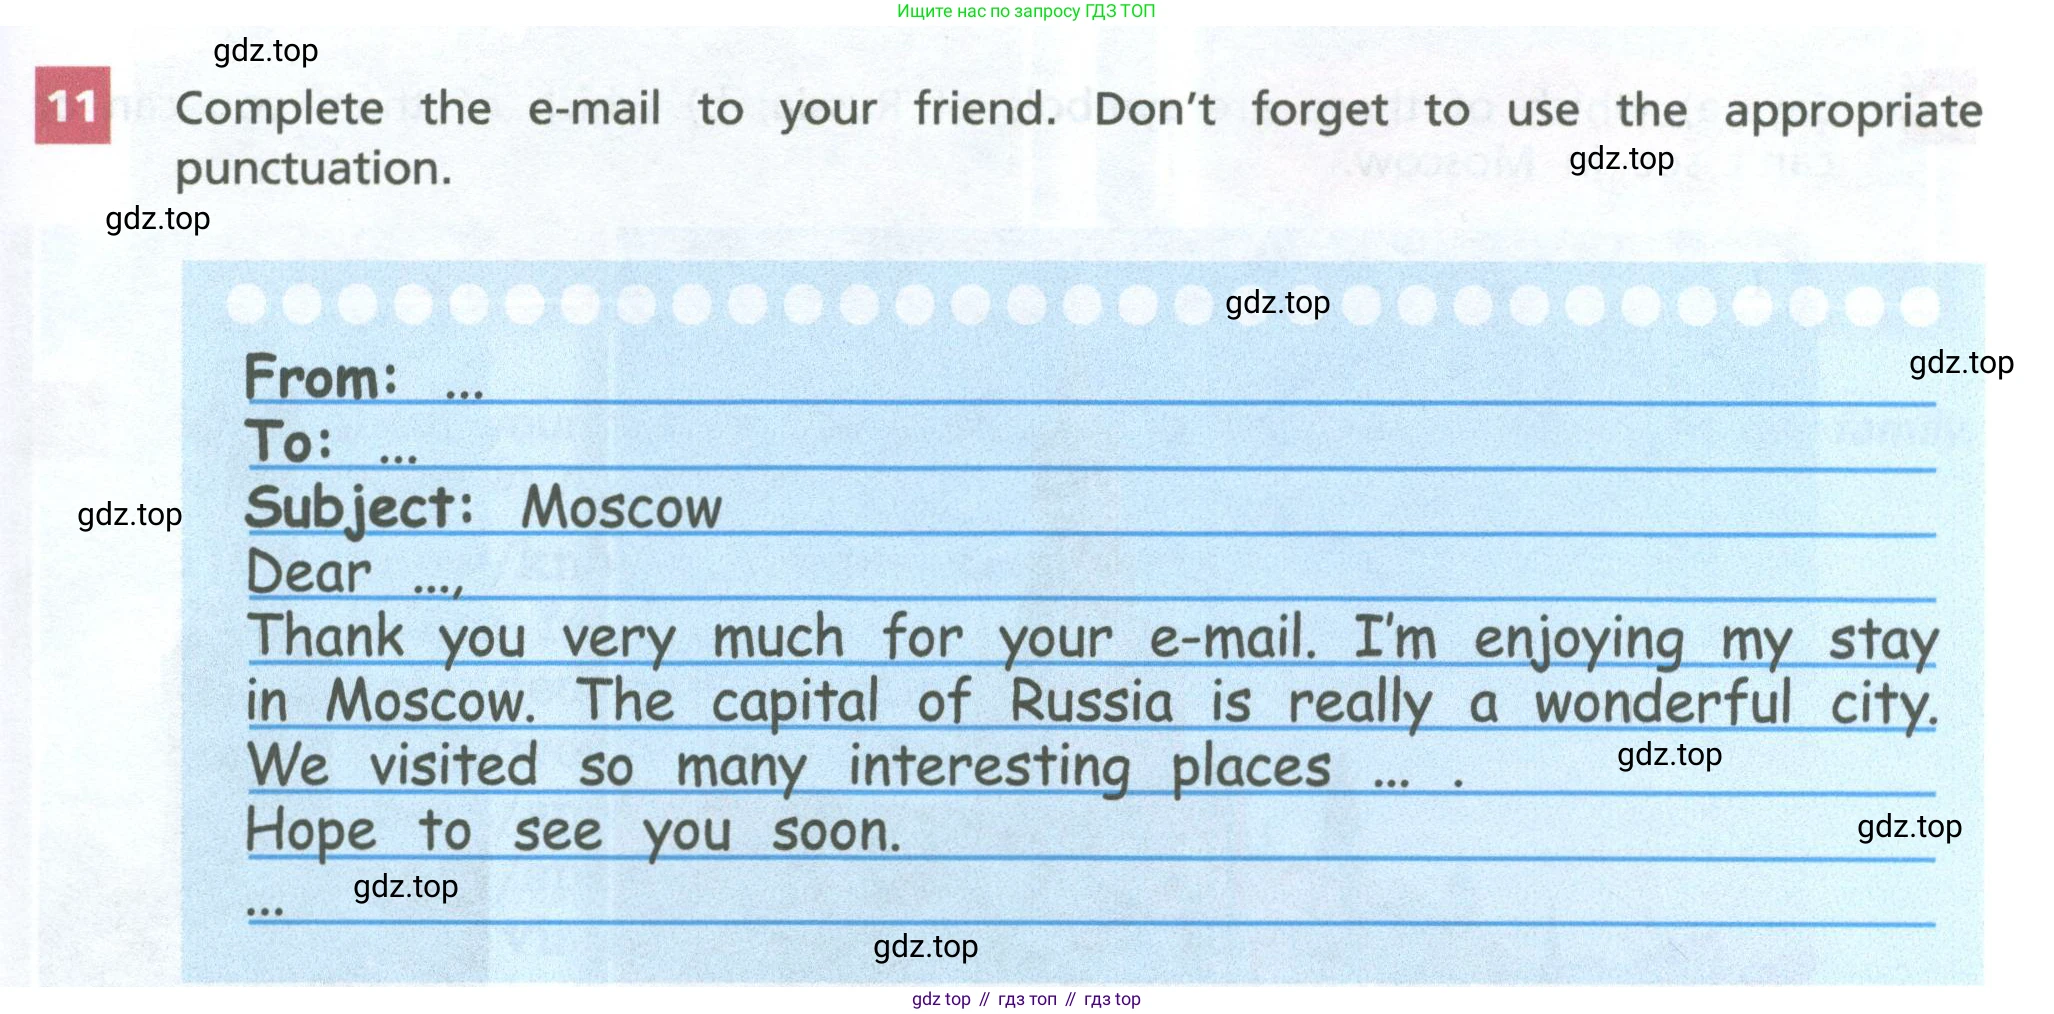 Ищите нас по запросу ГДЗ ТОП
gdz.top
11 Complete the e-mail to your friend. Don't forget to use the appropriate
punctuation.
gdz.top
gdz.top
gdz.top
gdz.top
From: ...
To: ...
Subject: Moscow
gdz.top
Dear ...,
Thank you very much for your e-mail. I'm enjoying my stay
in Moscow. The capital of Russia is really a wonderful city.
We visited so many interesting places ... .
gdz.top
Hope to see you soon.
gdz.top
gdz.top
...
gdz.top
gdz top // гдз топ // гдз top